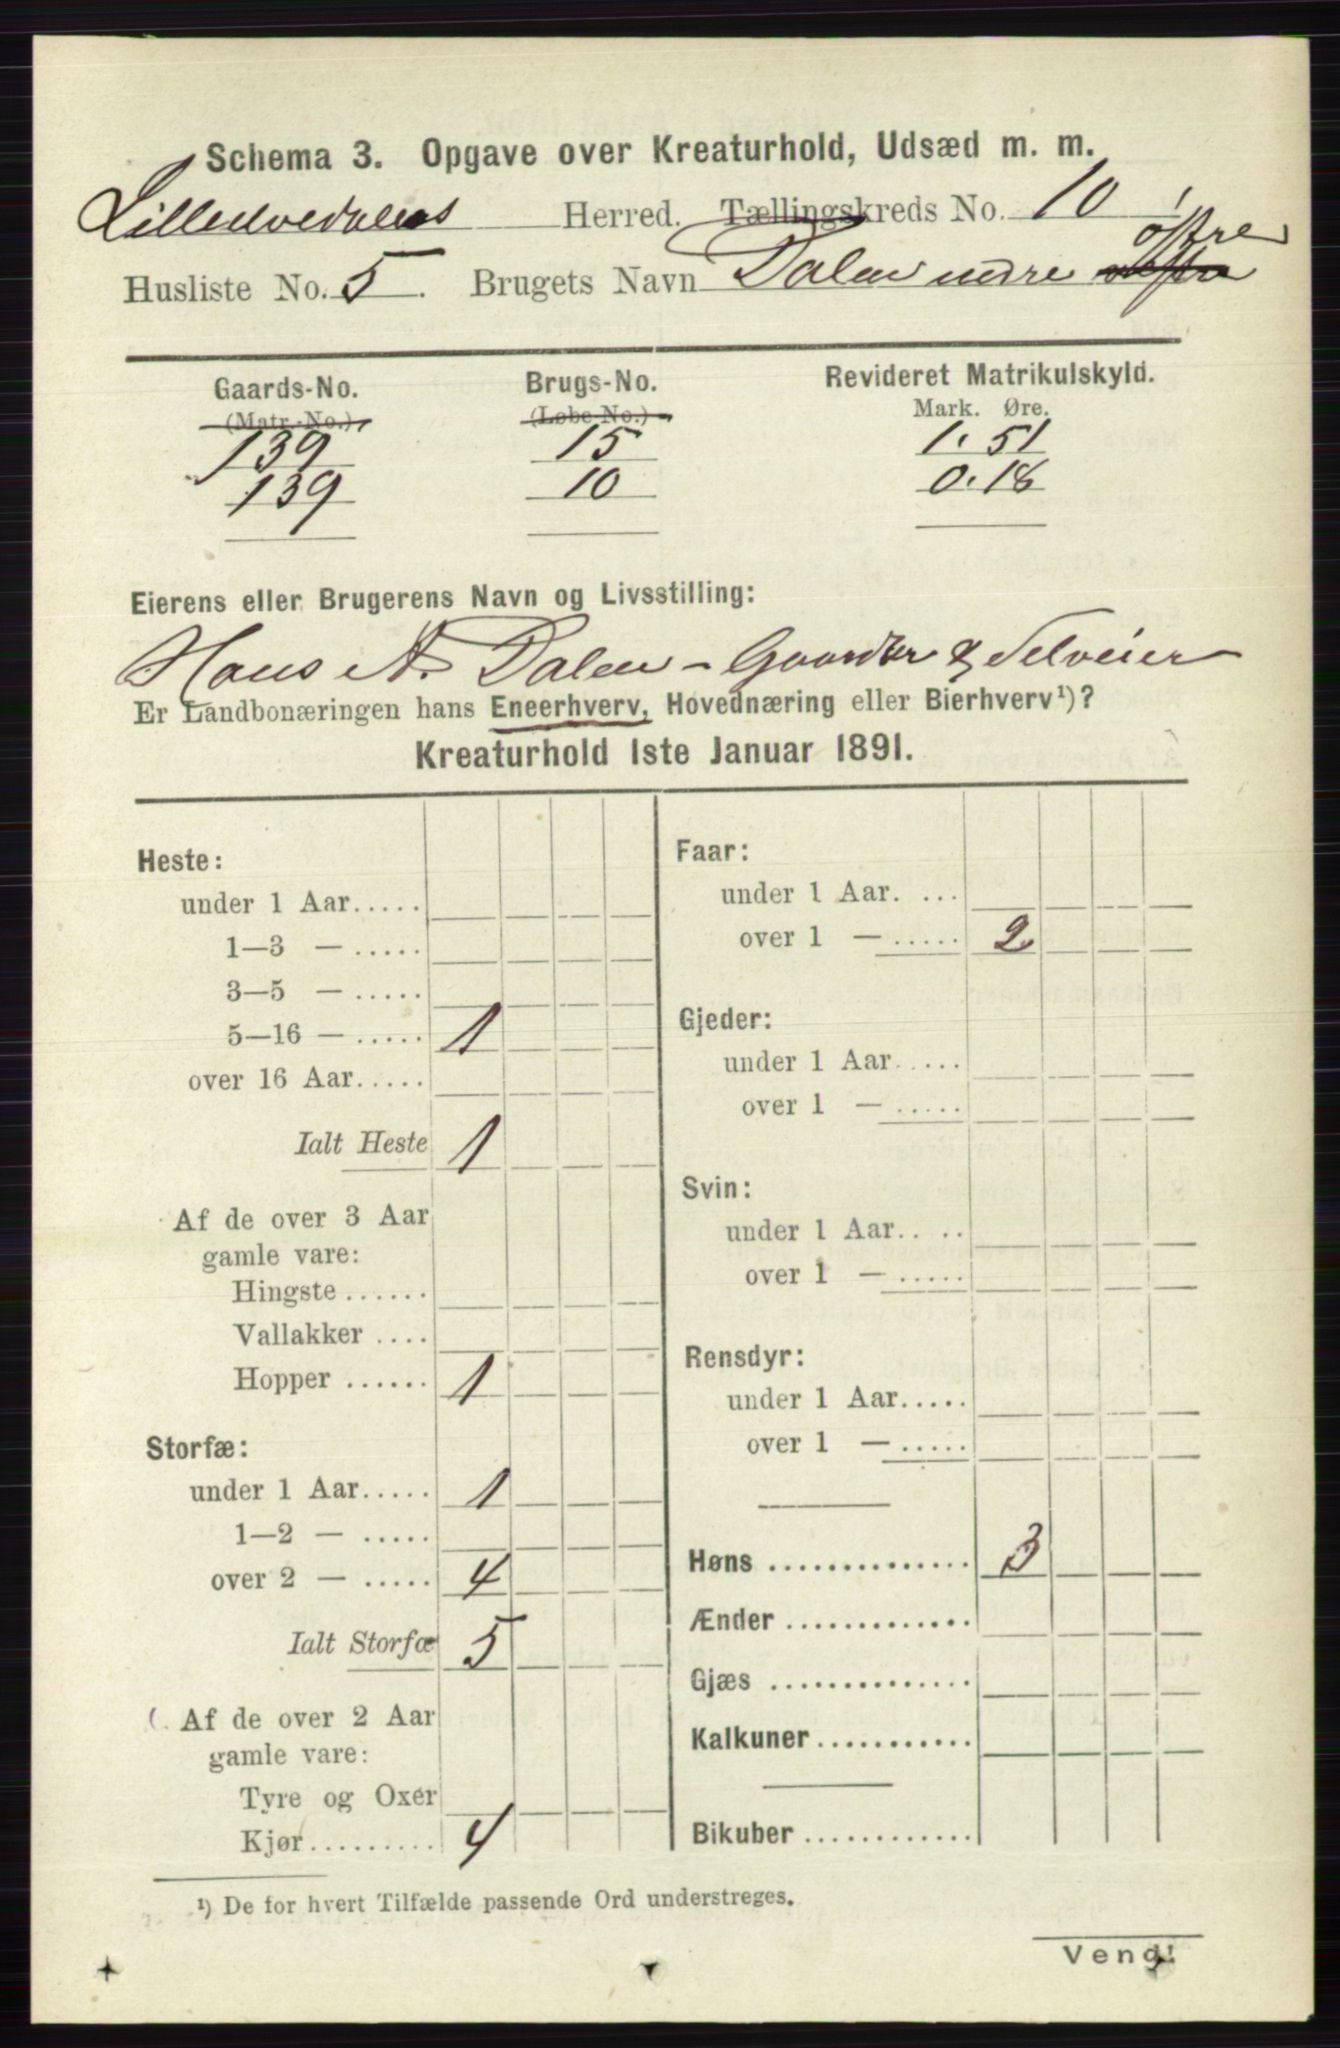 Schema 3. Opgave over Kreaturhold, Udsæd m. m.
Lilleelvedalens Herred. Tællingskreds No. 10
østre
Husliste No. 5. Brugets Navn Dalen nedre vestre
Gaards-No. Brugs-No. Revideret Matrikulskyld.
(Matr.-No.) (Løbe-No.) Mark. Øre.
139 15 1.51
139 10 0.18
Eierens eller Brugerens Navn og Livsstilling:
Hans A. Dalen - Gaardbr & Selveier
Er Landbonæringen hans Eneerhverv, Hovednæring eller Bierhverv¹)?
Kreaturhold 1ste Januar 1891.
Heste:
under 1 Aar.....
1—3 — .....
3—5 — .....
5—16 — ..... 1
over 16 Aar.....
Ialt Heste 1
Af de over 3 Aar
gamle vare:
Hingste ......
Vallakker ....
Hopper ...... 1
Storfæ:
under 1 Aar..... 1
1—2 — .....
over 2 — ..... 4
Ialt Storfæ 5
Af de over 2 Aar
gamle vare:
Tyre og Oxer
Kjør......... 4
Faar:
under 1 Aar. ...
over 1 — ..... 2
Gjeder:
under 1 Aar.....
over 1 — .....
Svin:
under 1 Aar.. ..
over 1 — .....
Rensdyr:
under 1 Aar.....
over 1 — .....
Høns .............. 3
Ænder .............
Gjæs ..............
Kalkuner...........
Bikuber ............
¹) De for hvert Tilfælde passende Ord understreges.
Vend!